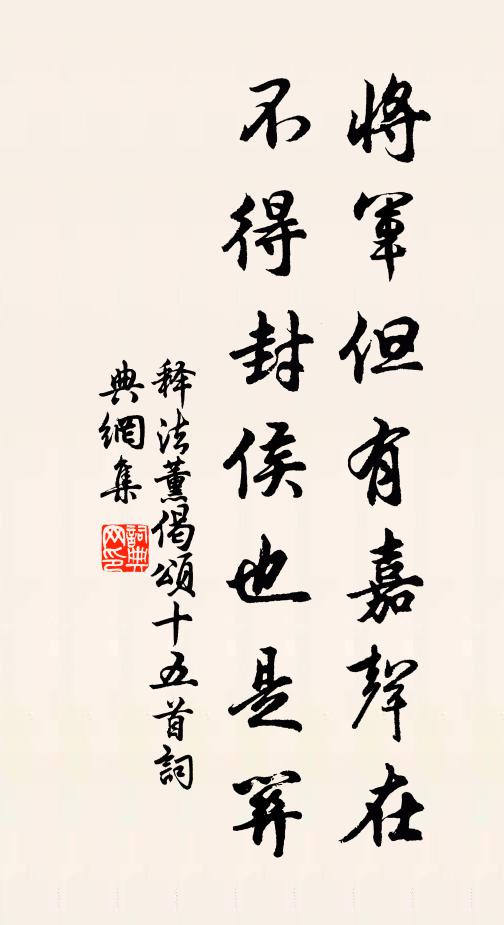 將軍但有嘉聲在
不得封侯也是閑
释法薰偈頌十五首詞
典網集
詞典
网印